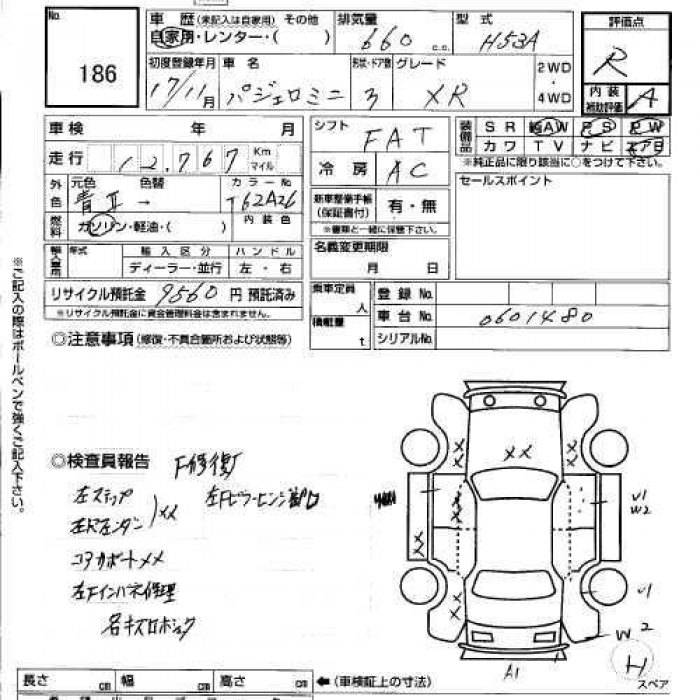 No.
186
車 歴 (未記入は自家用) その他
自家用・レンター・( )
排気量
660 c.c.
型 式
H53A
評価点
R
内装
補助評価
A
初度登録年月
17/11月
車 名
パジェロミニ
形状・ドア数
3
グレード
XR
2WD
・
4WD
車検 年 月
走行 12,767 Km
マイル
シフト
FAT
冷房
AC
装備品
SR AW PS PW
カワ TV ナビ エアB
※純正品に限り該当に○をつけて下さい。
セールスポイント
外色
元色 色替 カラーNo
青II → T62A26
燃料
ガソリン・軽油・( )
内装色
新車整備手帳
(保証書付)
有・無
※書類と一緒に保管下さい。
輸入車用
年式
輸入区分
ディーラー・並行
ハンドル
左・右
名義変更期限
月 日
リサイクル預託金 9560 円 預託済み
※リサイクル預託金に資金管理料金は含まれません。
乗車定員
人
積載量
t
登録No.
車台No. 0601480
シリアルNo.
◎注意事項 (修復・不具合箇所および状態等)
◎検査員報告 F修復
左ステップ
左Fピラーヒンジ部
××
コアサポート××
左Fインパネ修理
××
××
××
××
××
××
U1
W2
U1
W2
A1
H
スペア
※ご記入の際はボールペンで強くご記入下さい。
長さ cm 幅 cm 高さ cm ←(車検証上の寸法)